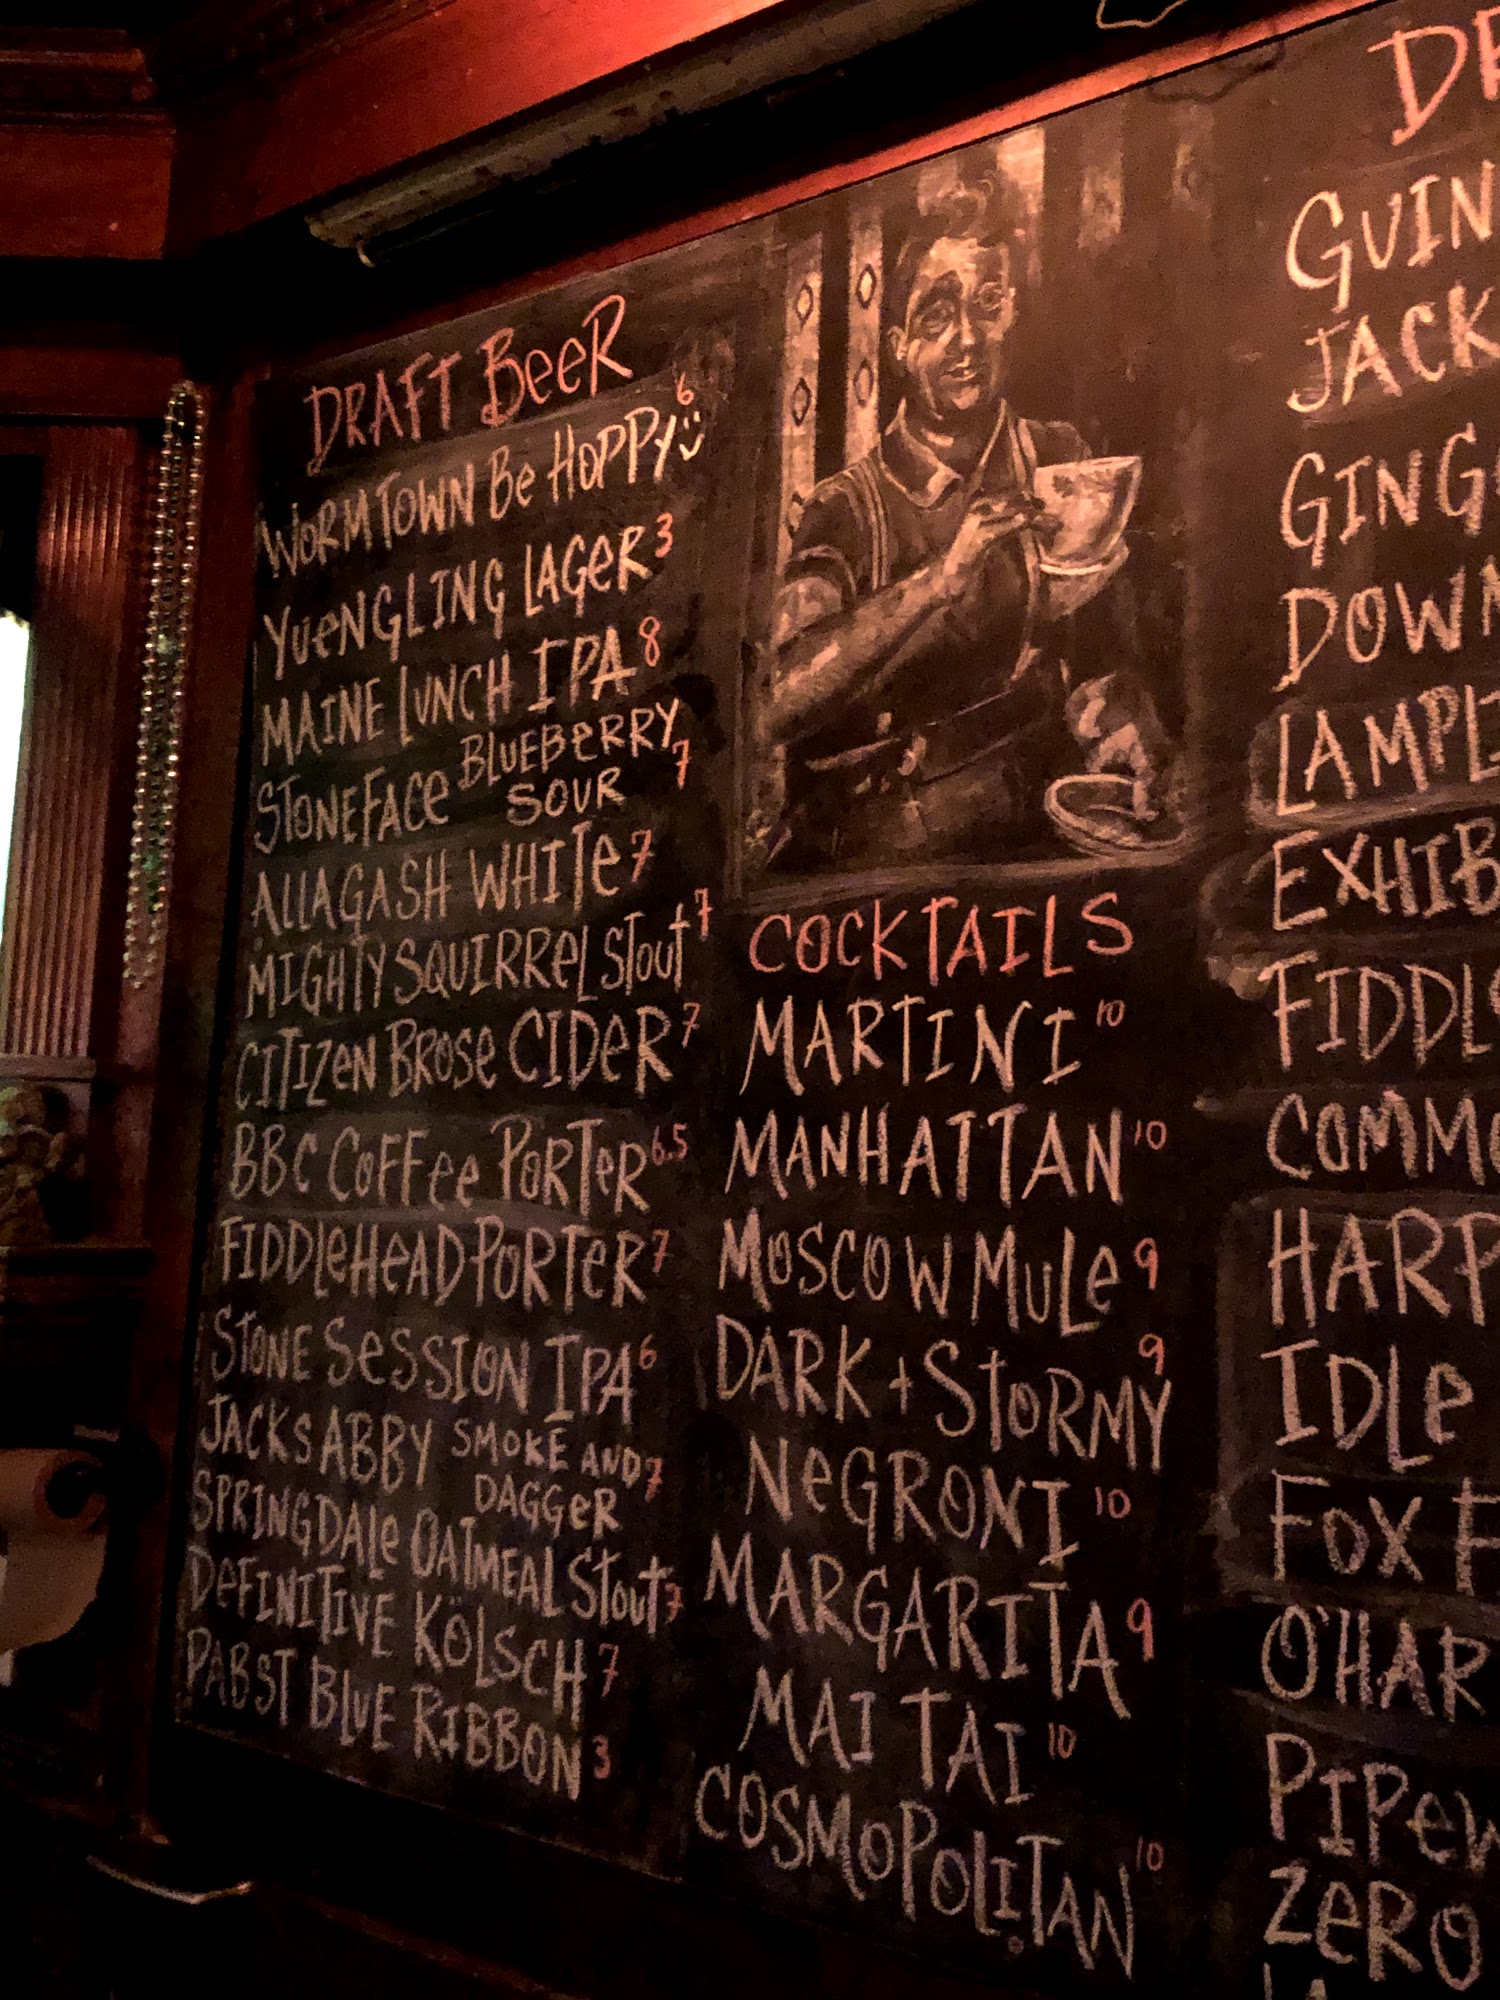 DRAFT BeeR
WORMTOWN Be HOPPY 6
YUeNGLING LAGeR 3
MAINE LUNCH IPA 8
STONEFACe BLUEBERRY
SOUR 7
ALLAGASH WHITe 7
MIGHTY SQUIRReL STout 7
CITIZeN BROSe CIDeR 7
BBC COFFee PORTeR 6.5
FIDDLeHeAD PORTeR 7
STONE SeSSION IPA 6
JACKS ABBY SMOKE AND 7
DAGGeR
SPRINGDALe OATMEAL STout 7
DeFINITIVE KÖLSCH 7
PABST BLUE RIBBON 3
COCKTAILS
MARTINI 10
MANHATTAN 10
MOSCOW MULe 9
DARK + STORMY 9
NeGRONI 10
MARGARITA 9
MAI TAI 10
COSMOPOLITAN 10
DR
GUIN
JACK
GING
DOWN
LAMPL
EXHIB
FIDDL
COMMO
HARP
IDLe
FOX F
O'HAR
PIPeW
ZeRO